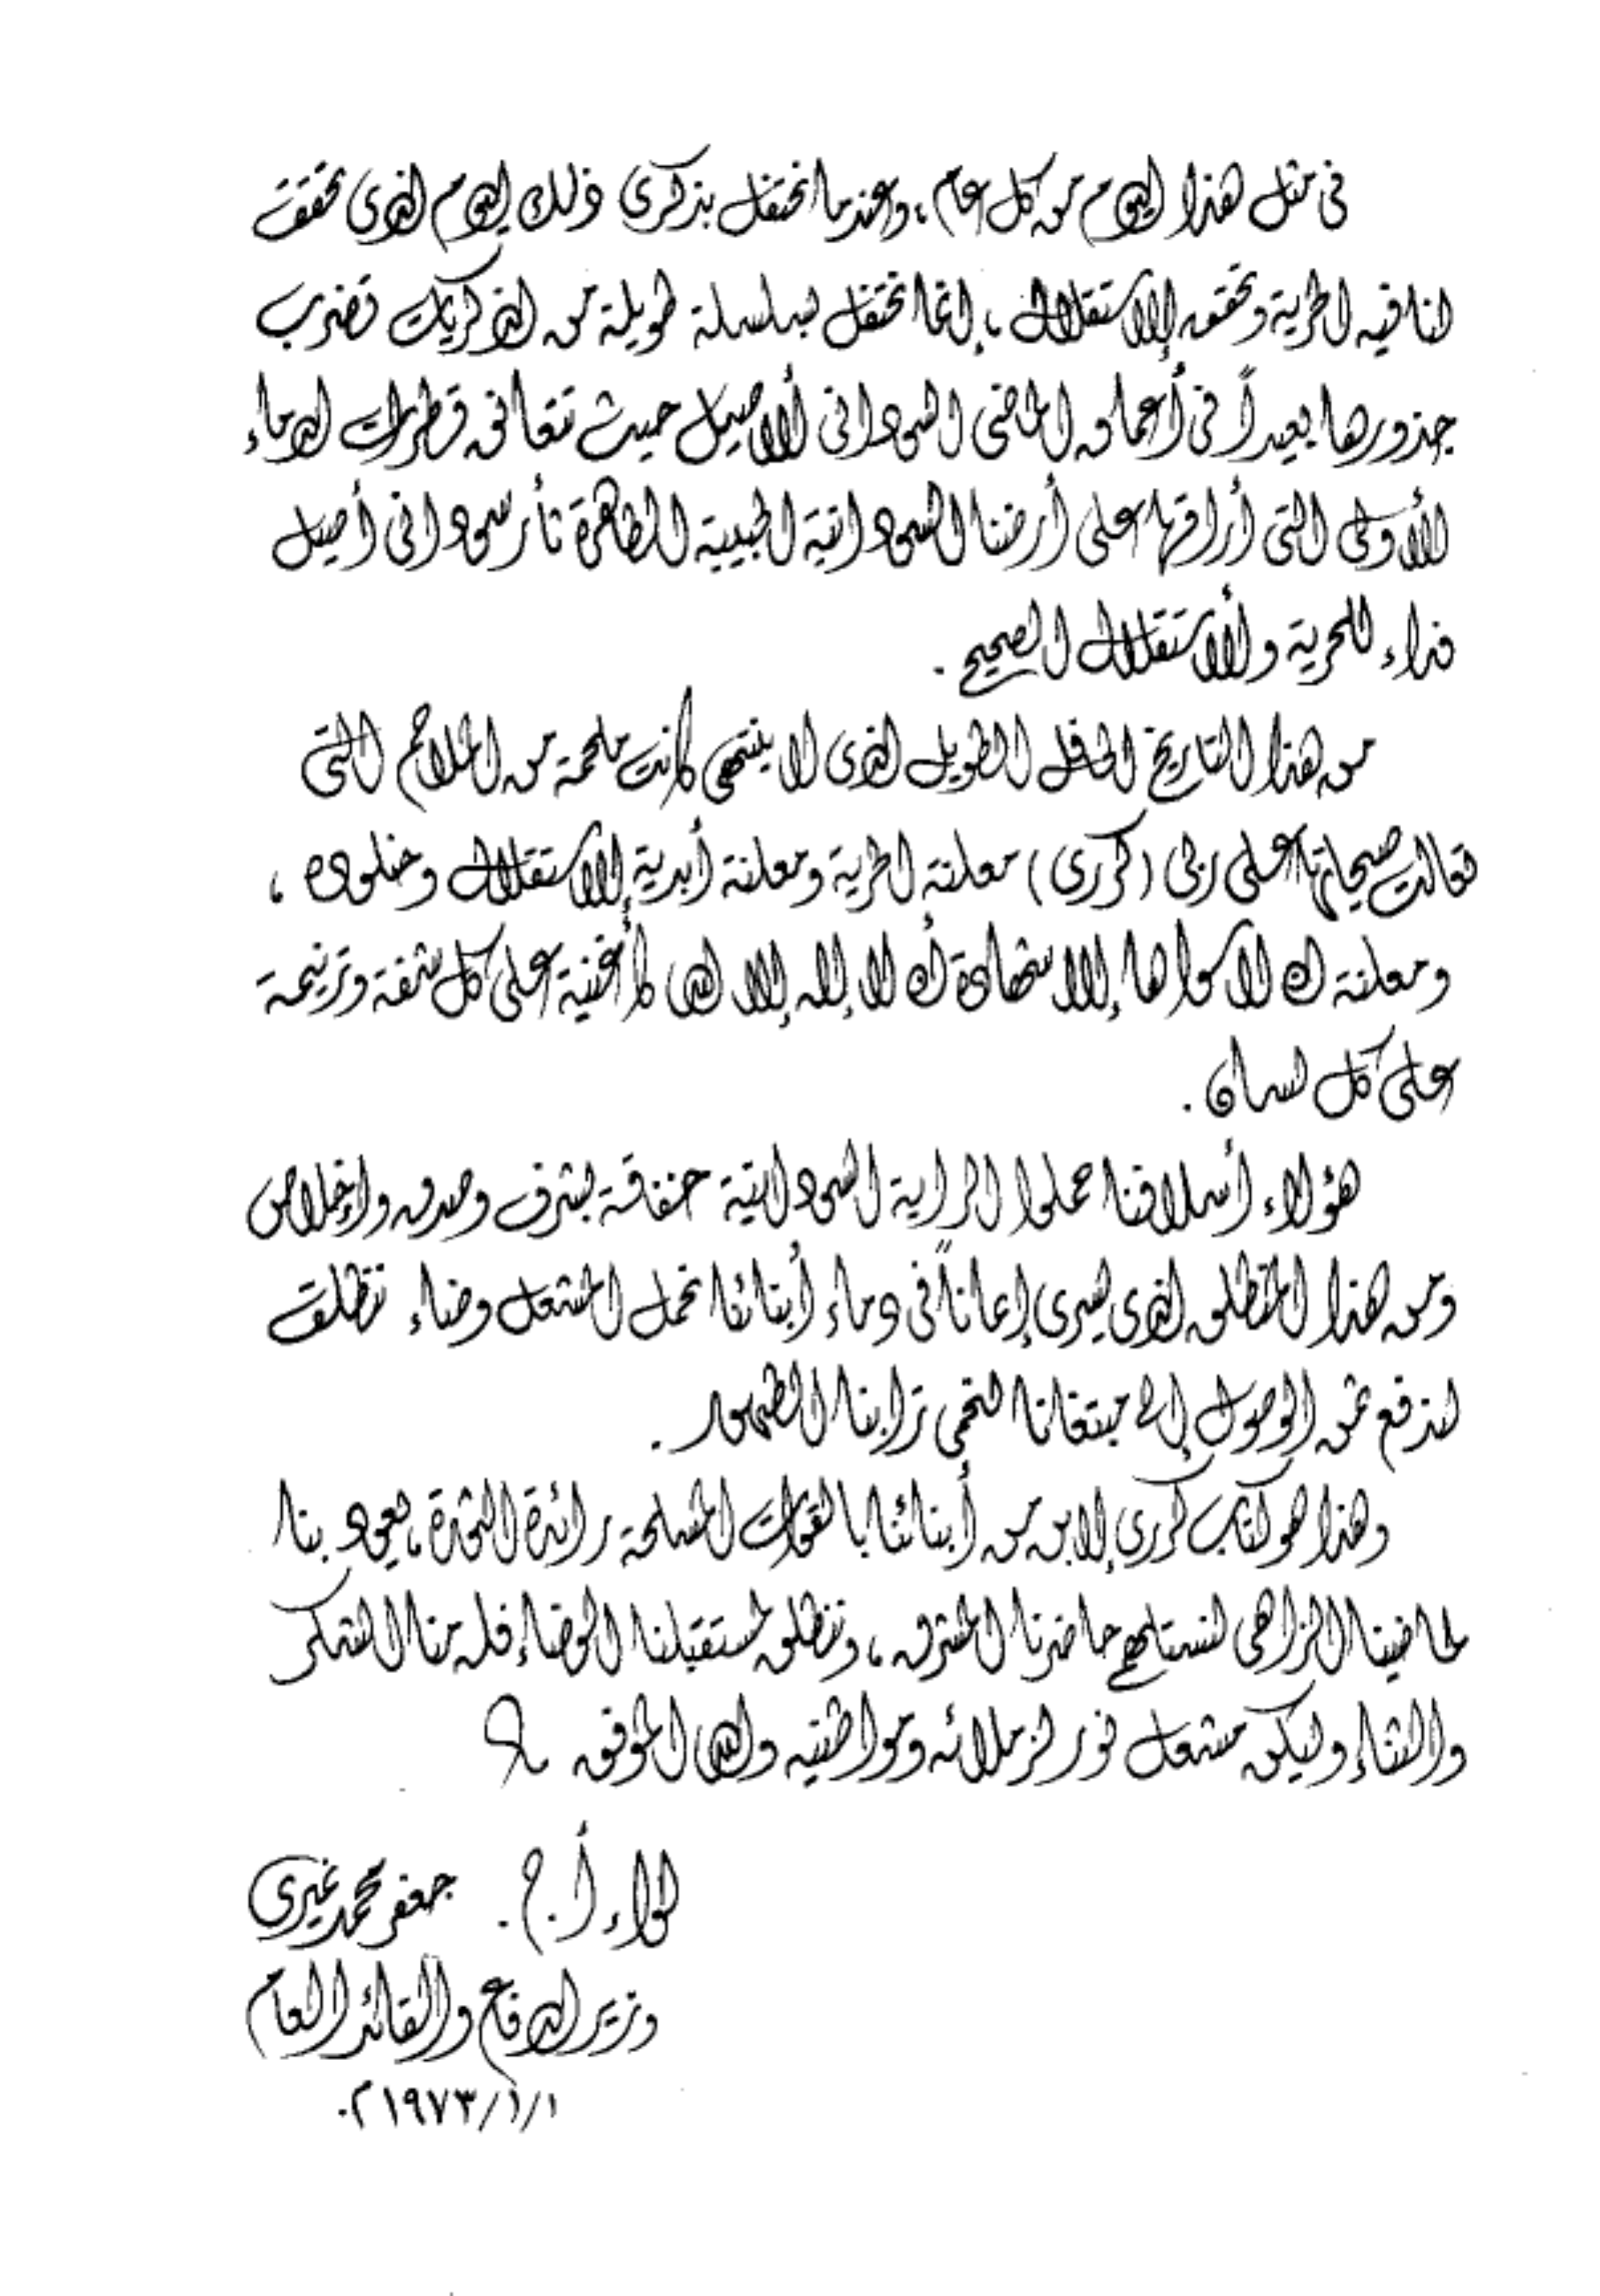 فى مثل هذا اليوم من كل عام ، وعندما نحتفل بذكرى ذلك اليوم الذى تحققت
لنا فيه الحرية وتحقق الإستقلال ، إنما نحتفل بسلسلة طويلة من الذكريات تضرب
جذورها بعيداً فى أعماق الماضى السودانى الأصيل حيث تتعانق قطرات الدماء
الأولى التى أراقها على أرضنا السودانية الحبيبة الطاهرة ثائر سودانى أصيل
فداء للحرية والأستقلال الصحيح .
من هذا التاريخ الحافل الطويل الذى لا ينتهى كانت ملحمة من الملاحم التى
تعالت صيحاتها على ربى (كررى) معلنة الحرية ومعلنة أبدية الإستقلال وخلوده ،
ومعلنة ان لا سواها إلا شهادة أن لا إله إلا الله كأغنية على كل شفة وترنيمة
على كل لسان .
هؤلاء أسلافنا حملوا الراية السودانية خفاقة بشرف وصدق وإخلاص
ومن هذا المنطلق الذى يسرى إيماناً فى دماء أبنائنا نحمل المشعل وضاء ننطلق
لندفع ثمن الوصول إلى مبتغانا لنحمى ترابنا الطهور .
وهذا هو كتاب كررى لإبن من أبنائنا بالقوات المسلحة رائدة الثورة ، يعود بنا
لماضينا الزاهى لنستلهم حاضرنا المشرق ، وننطلق لمستقبلنا الوضاء فله منا الشكر
والثناء وليكن مشعل نور لزملائه ومواطنيه والله الموفق
لواء أ . ح . جعفر محمد نميرى
وزير الدفاع والقائد العام
١/١/١٩٧٣م.